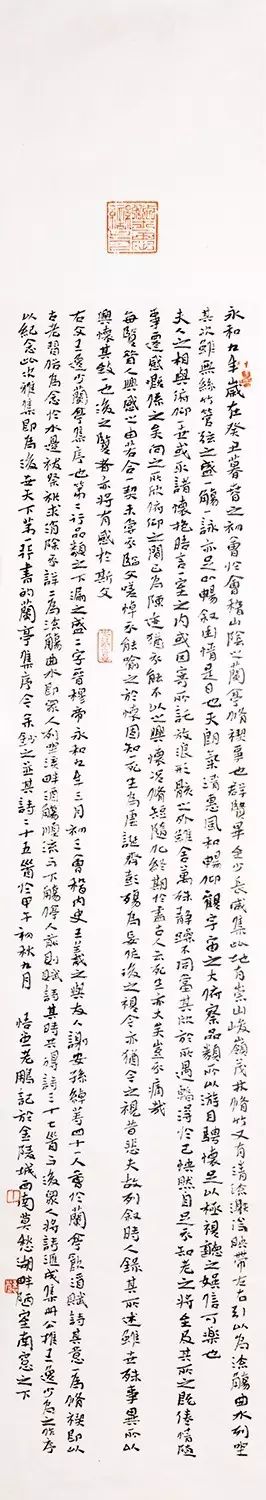 永和九年歲在癸丑暮春之初會於會稽山陰之蘭亭脩禊事也群賢畢至少長咸集此地有崇山峻嶺茂林脩竹又有清流激湍映帶左右引以為流觴曲水列坐
其次雖無絲竹管弦之盛一觴一詠亦足以暢敘幽情是日也天朗氣清惠風和暢仰觀宇宙之大俯察品類所以遊目騁懷足以極視聽之娛信可樂也
夫人之相與俯仰一世或取諸懷抱晤言一室之內或因寄所託放浪形骸之外雖舍萬殊靜躁不同當其欣於所遇暫得於己快然自足不知老之將至及其所之既倦情隨
事遷感慨係之矣向之所欣俯仰之間已為陳迹猶不能不以之興懷況脩短隨化終期於盡古人云死生亦大矣豈不痛哉
每覽昔人興感之由若合一契未嘗不臨文嗟悼不能喻之於懷固知一死生為虛誕齊彭殤為妄作後之視今亦猶今之視昔悲夫故列敘時人錄其所述雖世殊事異所以
興懷其致一也後之覽者亦將有感於斯文
右文王逸少蘭亭集序也第二行品類之下漏之盛二字晉穆帝永和九年三月初三會稽內史王羲之與友人謝安孫綽等四十一人會於蘭亭飲酒賦詩其意一為脩禊即以
古老習俗為念於水邊祓禊求消除不祥二為流觴曲水即眾人列坐溪畔酒觴順流而下觴停人前則賦詩其時共得詩三十七首而後眾人將詩匯成集冊公推王逸少為之作序
以紀念此次雅集即為後世天下第一行書的蘭亭集序今余鈔之並其詩二十五首於甲午初秋九月 悟西老鵬記於金陵城西南莫愁湖畔陋室南窗之下